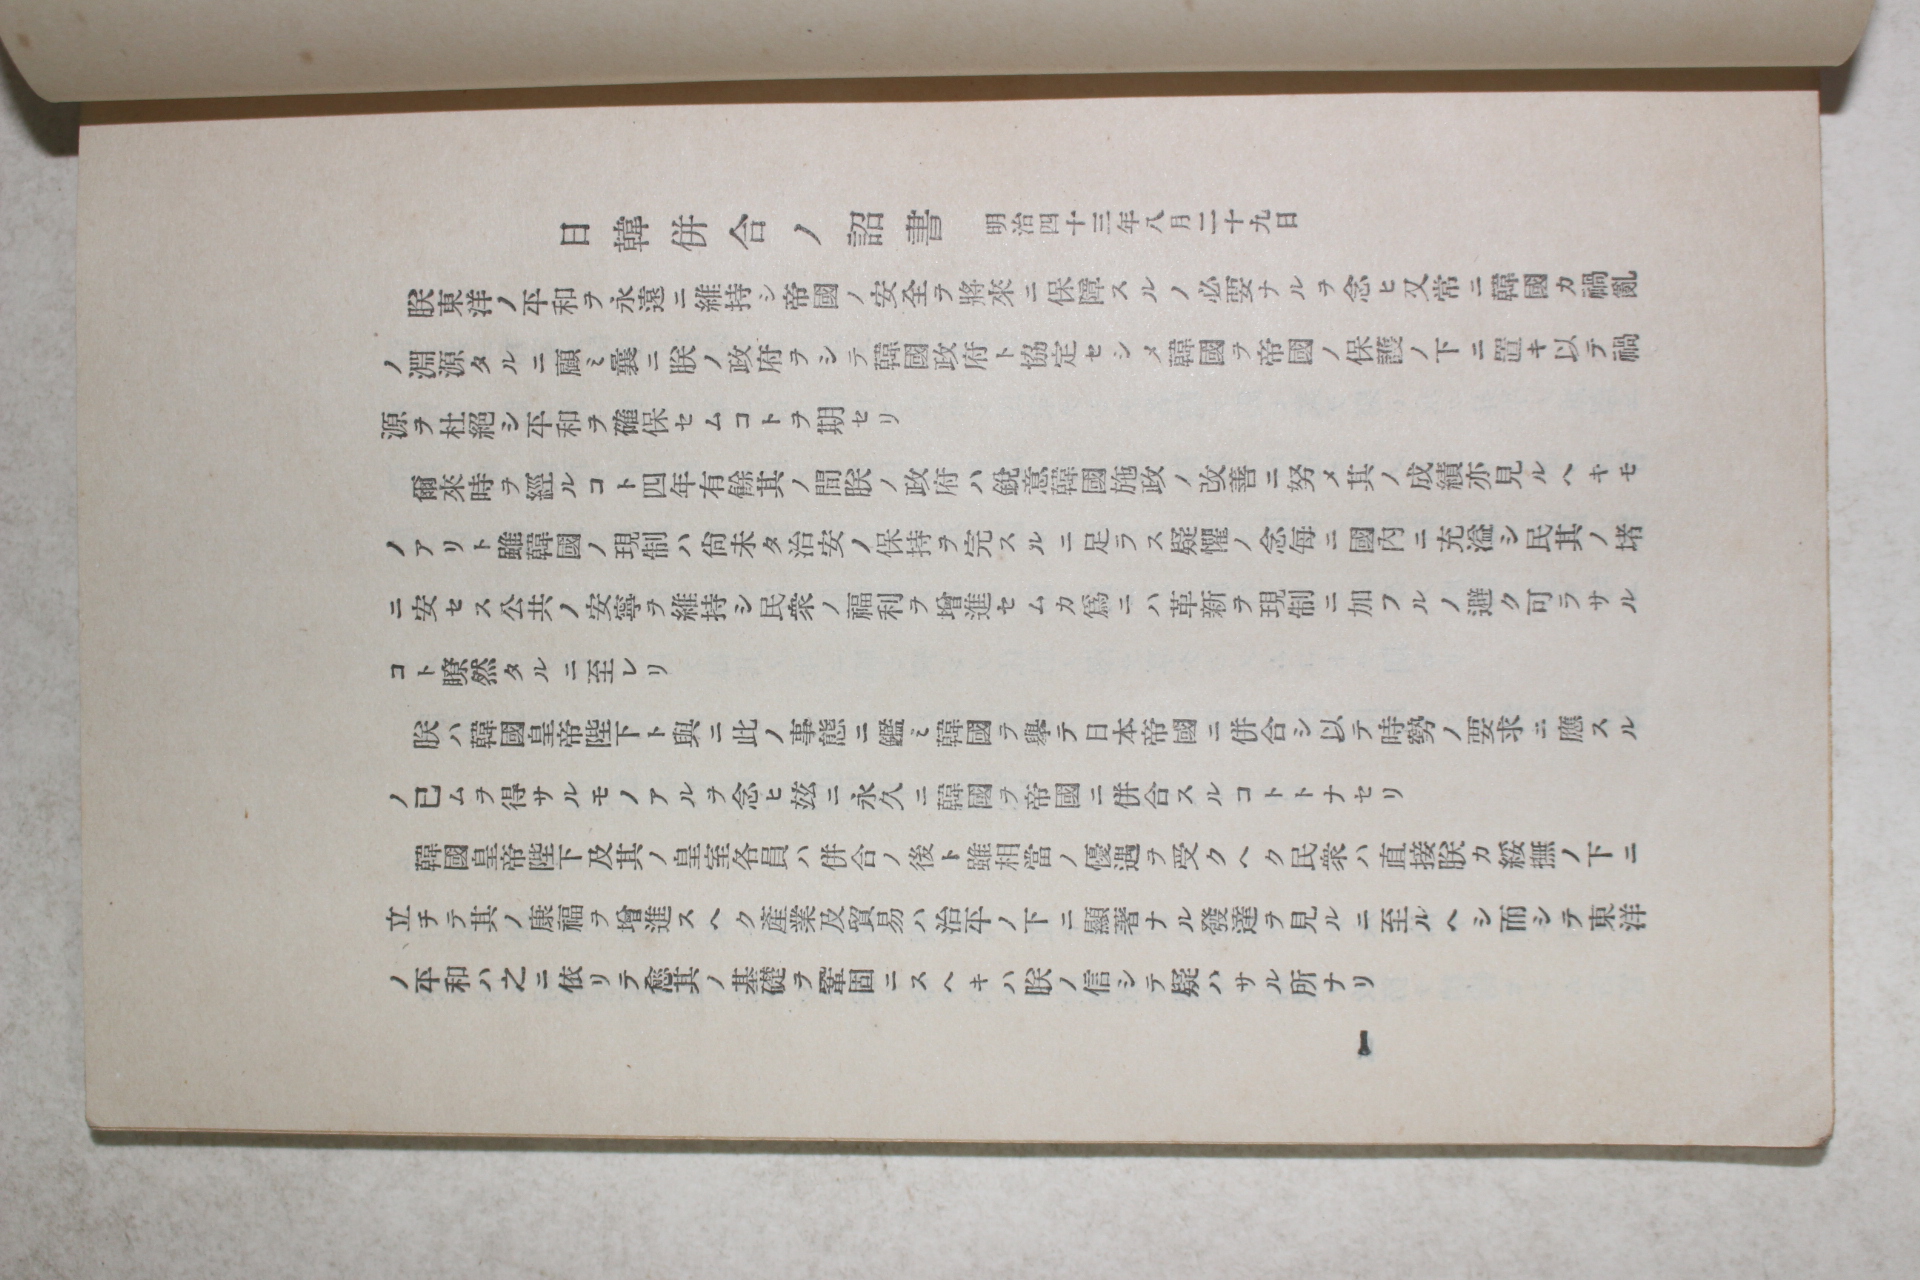 日韓併合ノ詔書 明治四十三年八月二十九日
朕東洋ノ平和ヲ永遠ニ維持シ帝國ノ安全ヲ將來ニ保障スルノ必要ナルヲ念ヒ又常ニ韓國カ禍亂
ノ淵源タルニ顧ミ曩ニ朕ノ政府ヲシテ韓國政府ト協定セシメ韓國ヲ帝國ノ保護ノ下ニ置キ以テ禍
源ヲ杜絕シ平和ヲ確保セムコトヲ期セリ
爾來時ヲ經ルコト四年有餘其ノ間朕ノ政府ハ銳意韓國施政ノ改善ニ努メ其ノ成績亦見ルヘキモ
ノアリト雖韓國ノ現制ハ尙未タ治安ノ保持ヲ完スルニ足ラス疑懼ノ念每ニ國內ニ充溢シ民其ノ堵
ニ安セス公共ノ安寧ヲ維持シ民衆ノ福利ヲ增進セムカ爲ニハ革新ヲ現制ニ加フルノ避ク可ラサル
コト瞭然タルニ至レリ
朕ハ韓國皇帝陛下ト與ニ此ノ事態ニ鑑ミ韓國ヲ擧テ日本帝國ニ併合シ以テ時勢ノ要求ニ應スル
ノ已ムヲ得サルモノアルヲ念ヒ玆ニ永久ニ韓國ヲ帝國ニ併合スルコトトナセリ
韓國皇帝陛下及其ノ皇室各員ハ併合ノ後ト雖相當ノ優遇ヲ受クヘク民衆ハ直接朕カ綏撫ノ下ニ
立チテ其ノ康福ヲ增進スヘク產業及貿易ハ治平ノ下ニ顯著ナル發達ヲ見ルニ至ルヘシ而シテ東洋
ノ平和ハ之ニ依リテ愈其ノ基礎ヲ鞏固ニスヘキハ朕ノ信シテ疑ハサル所ナリ
一